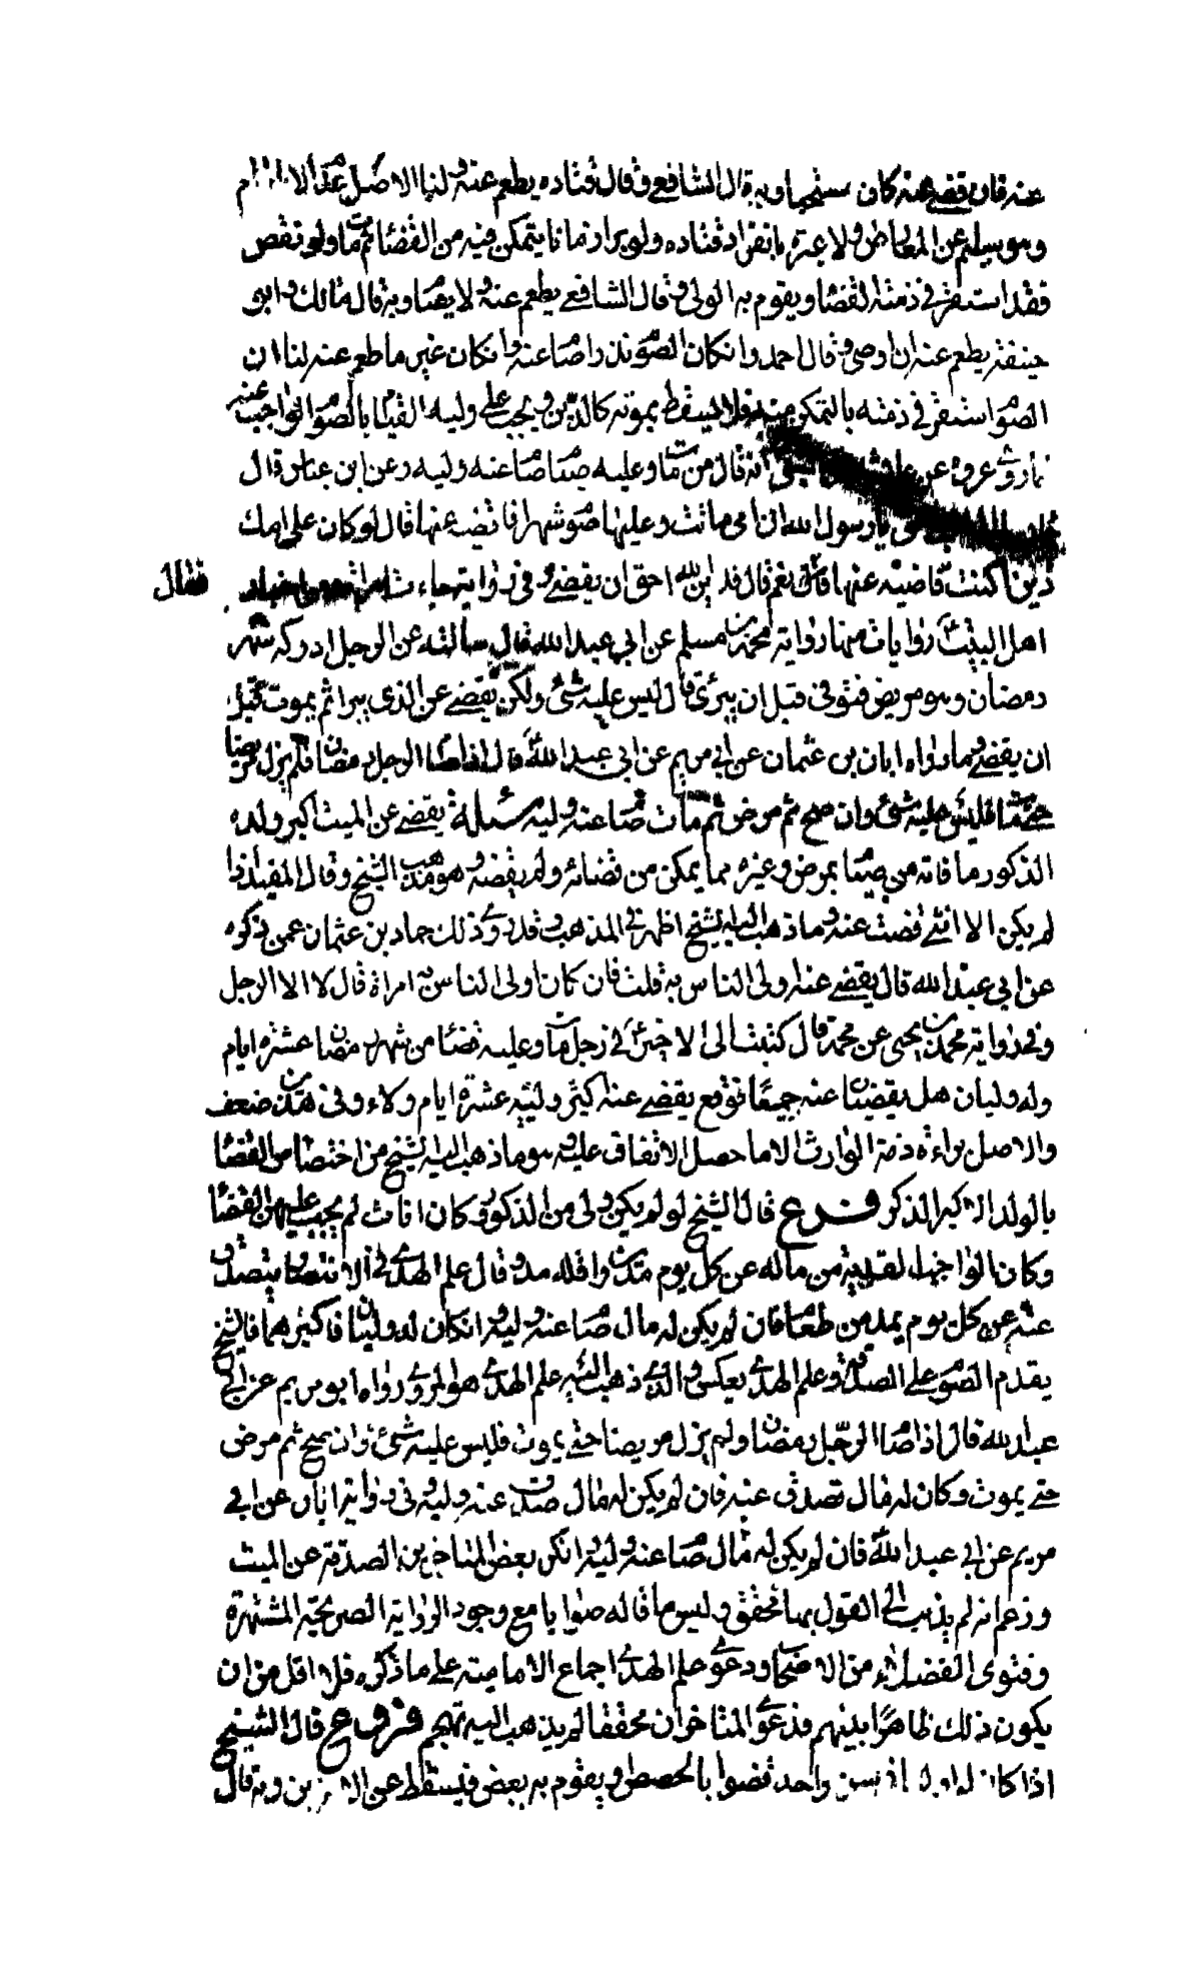 عنه فان قضى عنه كان مستحبا وبه قال الشافعى وقال قتاده يطعم عنه ولنا الاصل عدم الالزام
وهو سليم عن المعارض ولا عبرة بانفراد قتاده ولو برا زمانا يتمكن فيه من القضاء ثم مات ولم يقض
فقد استقر فى ذمته القضا ويقوم به الولى وقال الشافعى يطعم عنه ولا يصام وبه قال مالك وابو
حنيفة يطعم عنه ان اوصى وقال احمد وان كان الصوم نذرا صام عنه وان كان غيره اطعم عنه لنا ان
الصوم استقر فى ذمته بالتمكن منه فلا يسقط بموته كالدين ويجب على وليه القيام بالصوم الواجب عنه
ما روى عروة عن انه قال من مات وعليه صيام صام عنه وليه وعن ابن عباس قال
يا رسول الله ان امى ماتت وعليها صوم شهر افاقضيه عنها قال لو كان على امك
دين اكنت قاضيه عنها قال نعم قال فدين الله احق ان يقضى وفى رواية جاءت فقال
اهل البيت روايات منها رواية محمد بن مسلم عن ابى عبد الله قال سالته عن الرجل ادركه شهر
رمضان وهو مريض فتوفى قبل ان يبرئ قال ليس عليه شئ ولكن يقضى عن الذى يبرا ثم يموت قبل
ان يقضى وما رواه ابان بن عثمان عن ابى مريم عن ابى عبد الله قال اذا صام الرجل رمضان فلم يزل مريضا
حتى مات فليس عليه شئ وان صح ثم مرض ثم مات صام عنه وليه مسئلة يقضى عن الميت اكبر ولده
الذكور ما فاته من صيام بمرض وغيره مما يمكن من قضائه ولم يقضه وهو مذهب الشيخ وقال المفيد اذا
لم يكن الا انثى قضت عنه وما ذهب اليه الشيخ اظهر فى المذهب وقد روى ذلك حماد بن عثمان عمن ذكره
عن ابى عبد الله قال يقضى عنه اولى الناس به قلت فان كان اولى الناس به امراة قال لا الا الرجل
وفى رواية محمد بن يحيى عن محمد قال كتبت الى الاخير فى رجل مات وعليه قضا من شهر رمضان عشرة ايام
وله وليان هل يقضيان عنه جميعا فوقع يقضى عنه اكبر وليه عشرة ايام ولاء وفى هذين ضعف
والاصل براءة ذمة الوارث الا ما حصل الاتفاق عليه وهو ما ذهب اليه الشيخ من اختصاص القضا
بالولد الاكبر الذكر فرع قال الشيخ لو لم يكن ولى من الذكور وكان اناث لم يجب عليهن القضا
وكان الواجب الفدية من ماله عن كل يوم مدين واقله مد وقال علم الهدى فى الانتصار يتصدق
عنه عن كل يوم بمد من طعام فان لم يكن له مال صام عنه وليه وان كان له وليان فاكبرهما فالشيخ
يقدم الصوم على الصدقة وعلم الهدى بعكس والذى ذهب اليه علم الهدى هو المروى رواه ابو مريم عن ابى
عبد الله قال اذا صام الرجل رمضان ولم يزل مريضا حتى يموت فليس عليه شئ وان صح ثم مرض
حتى يموت وكان له مال تصدق عنه فان لم يكن له مال تصدق عنه وليه وفى رواية ابان عن ابى
مريم عن ابى عبد الله فان لم يكن له مال صام عنه وليه وانكر بعض المتاخرين الصدقة عن الميت
وزعم انه لم يذهب الى القول بها محقق وليس ما قاله صوابا مع وجود الرواية الصريحة المشتهرة
وفتوى الفضلاء من الاصحاب ودعوى علم الهدى اجماع الامامية على ما ذكره فلا اقل من ان
يكون ذلك ظاهرا بينهم فدعوى المتاخر ان محققا لم يذهب اليه تهجم فروع قال الشيخ
اذا كان له اوليا سن واحد قضوا بالحصص او يقوم به بعض فيسقط عن الاخرين وبه قال